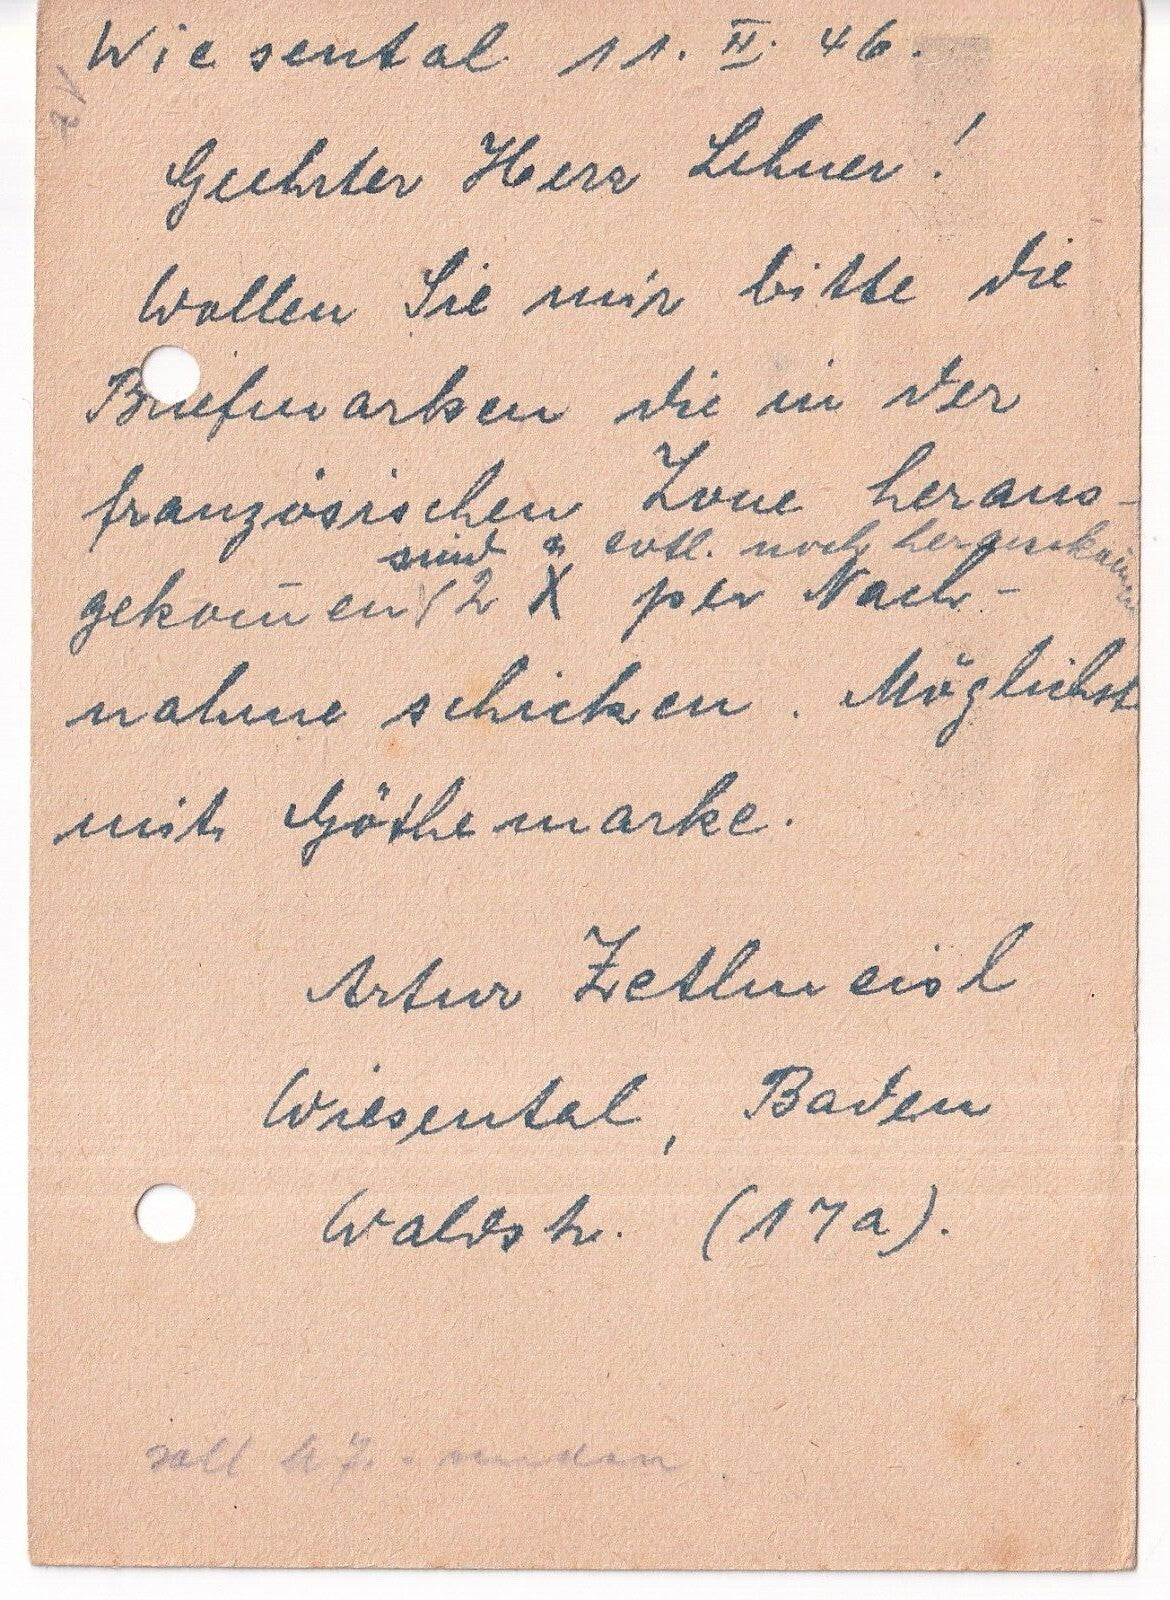 Wiesental 11. II. 46.
Geehrter Herr Lehner!
Wollen Sie mir bitte die
Briefmarken die in der
französischen Zone heraus-
sind u. evtl. noch
gekom̄en 2 X per Nach-
nahme schicken. Möglichst
mit Göthemarke.
Artur Zetlmeisl
Wiesental, Baden
Waldsh. (17a).